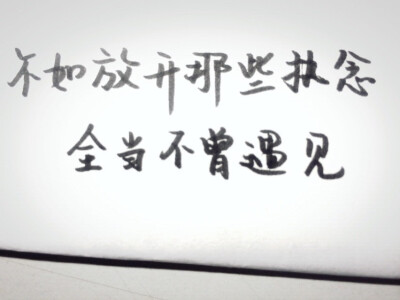 不如放开那些执念
全当不曾遇见